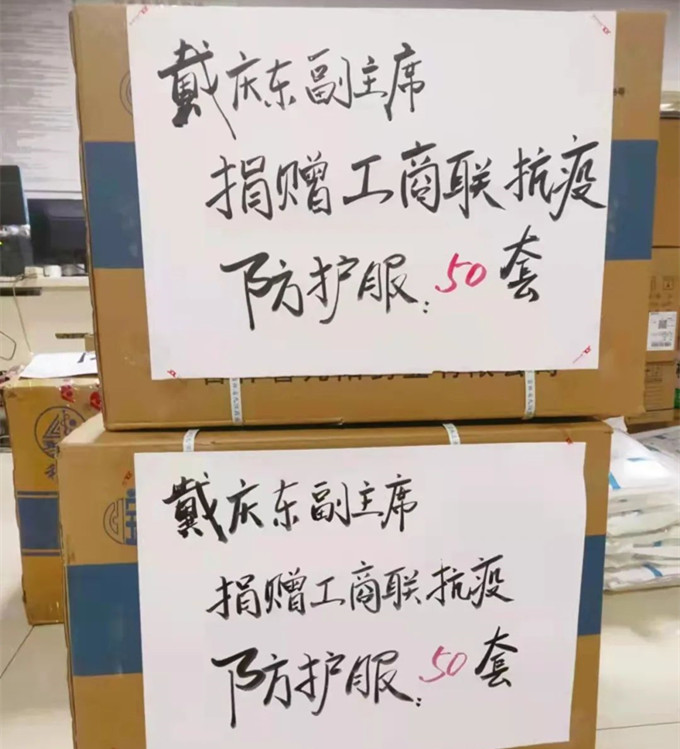 戴庆东副主席
捐赠工商联抗疫
防护服：50套
戴庆东副主席
捐赠工商联抗疫
防护服：50套